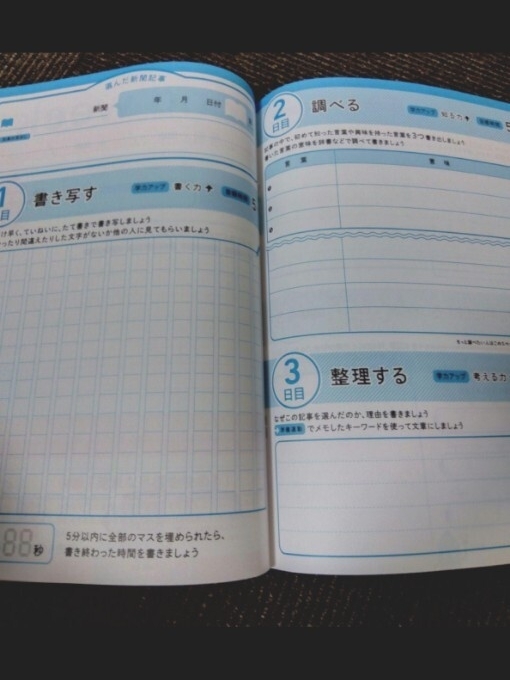 選んだ新聞記事
新聞
年 月 日付
1
日目
書き写す
学力アップ
書く力
け早く、ていねいに、たて書きで書き写しましょう
ったり間違えたりした文字がないか他の人に見てもらいましょう
88秒
5分以内に全部のマスを埋められたら、
書き終わった時間を書きましょう
2
日目
調べる
学力アップ
知る力
5
記事の中で、初めて知った言葉や興味を持った言葉を3つ書き出しましょう
書いた言葉の意味を辞書などで調べて書きましょう
言葉
意味
3
日目
整理する
学力アップ
考える力
なぜこの記事を選んだのか、理由を書きましょう
でメモしたキーワードを使って文章にしましょう